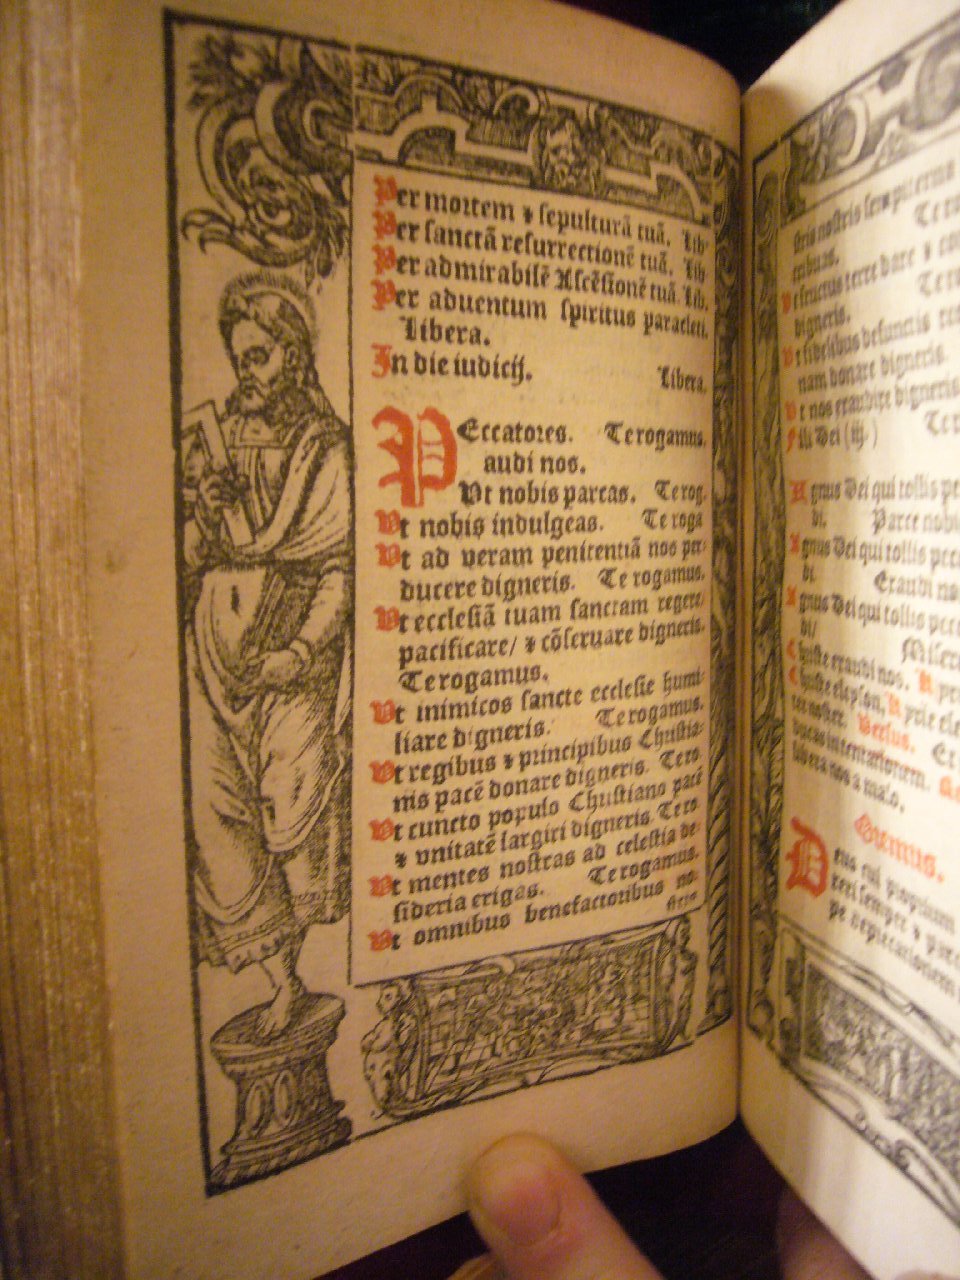 Per mortem ⁊ sepulturã tuã. Lib.
Per sanctã resurrectionẽ tuã. Lib
Per admirabilẽ Ascẽsionẽ tuã. Lib.
Per aduentum spiritus paracleti.
Libera.
In die iudicij. Libera.
PEccatores. Te rogamus.
audi nos.
Vt nobis parcas. Te rog.
Vt nobis indulgeas. Te roga
Vt ad veram penitentiã nos per-
ducere digneris. Te rogamus.
Vt ecclesiã tuam sanctam regere/
pacificare/ ⁊ cõseruare digneris.
Te rogamus.
Vt inimicos sancte ecclesie humi-
liare digneris. Te rogamus.
Vt regibus ⁊ principibus Christia-
nis pacẽ donare digneris. Te ro.
Vt cuncto populo Christiano pacẽ
⁊ vnitatẽ largiri digneris. Te ro.
Vt mentes nostras ad celestia de-
sideria erigas. Te rogamus.
Vt omnibus benefactoribus no-
stris
stris nostris sempiterna
Te ro
tribuas.
Vt fructus terre dare ⁊ con
digneris. Te ro
Vt fidelibus defunctis re
nam donare digneris.
Vt nos exaudire digneris
Fili Dei (iij.) Te ro
Agnus Dei qui tollis pe
di. Parce nobi
Agnus Dei qui tollis pecc
di. Exaudi no
Agnus Dei qui tollis pecc
di/ Miser
Christe exaudi nos. Kyri
Christe eleyson, Kyrie ele
ter noster. Versus. Et
ducas in tentationem.
libera nos a malo.
Oremus.
Deus cui proprium
reri semper ⁊ parce
pe deprecationem